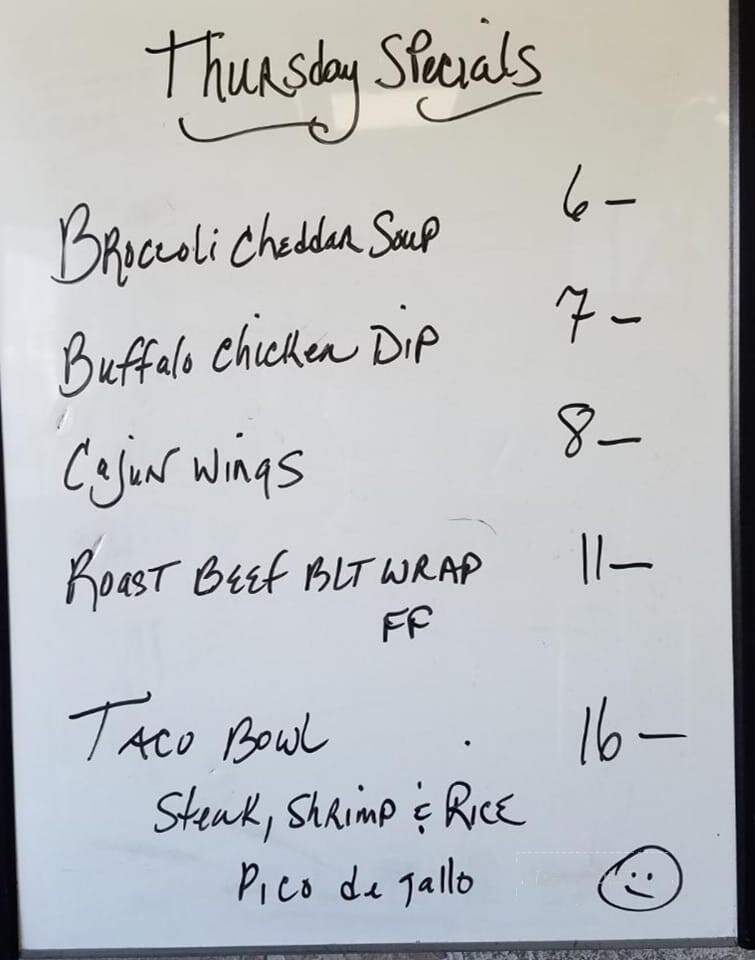 Thursday Specials
Broccoli Cheddar Soup 6 —
Buffalo Chicken Dip 7 —
Cajun Wings 8 —
Roast Beef BLT WRAP 11 —
FF
Taco Bowl 16 —
Steak, Shrimp & Rice
Pico de gallo